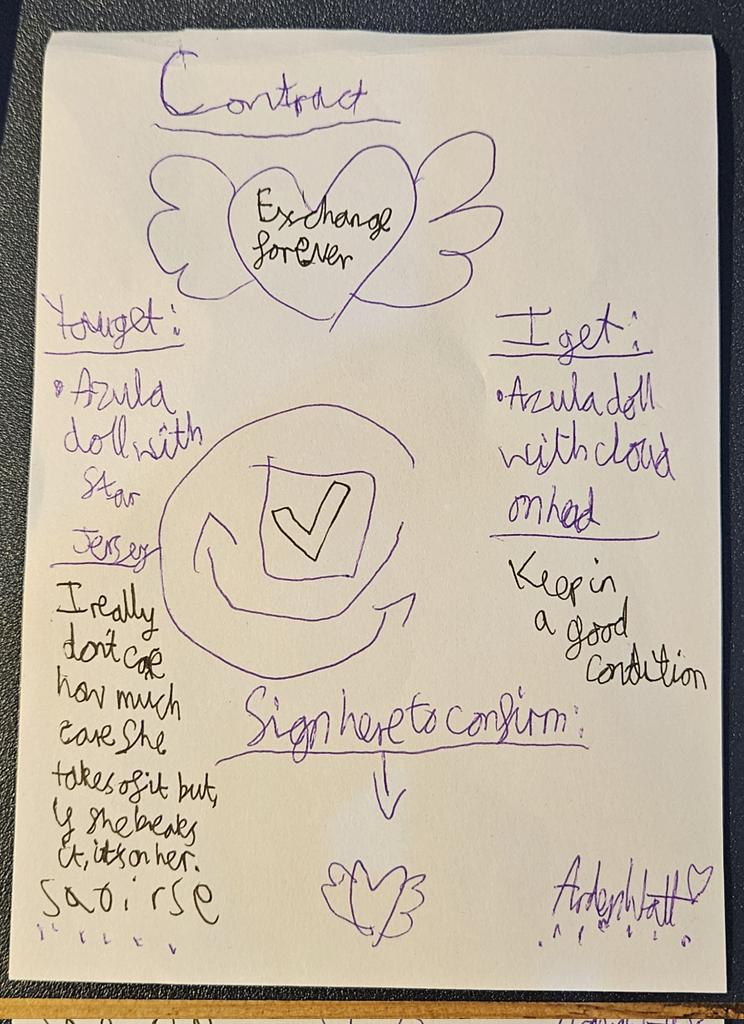 Contract
Exchange
forever
You get:
• Azula
doll with
Star
Jersey
I really
don't care
how much
care she
takes of it but,
if she breaks
it, it's on her.
saoirse
I get:
• Azula doll
with cloud
on head
Keep in
a good
condition
Sign here to confirm:
Arden